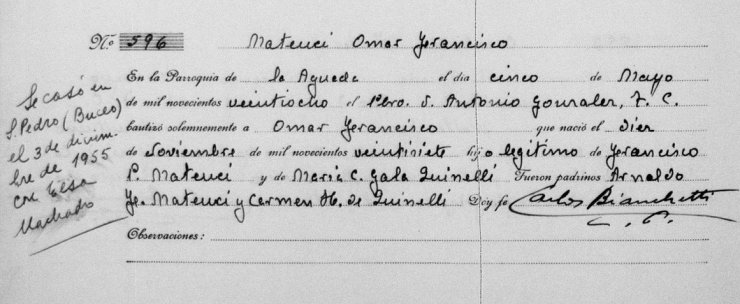 Nº 596 Mateuci Omar Francisco
En la Parroquia de la Aguada el día cinco de Mayo
de mil novecientos veintiocho el Pbro. S. Antonio Gonzalez, T. C.
bautizó solemnemente a Omar Francisco que nació el diez
de Noviembre de mil novecientos veintisiete hijo legítimo de Francisco
P. Mateuci y de Maria C. Gala Quinelli Fueron padrinos Arnaldo
F. Mateuci y Carmen M. de Quinelli Doy fe Carlos Bianchetti
C. P.
Observaciones:
Se casó en
S. Pedro (Buceo)
el 3 de diciem-
bre de 1955
con Elsa
Machado